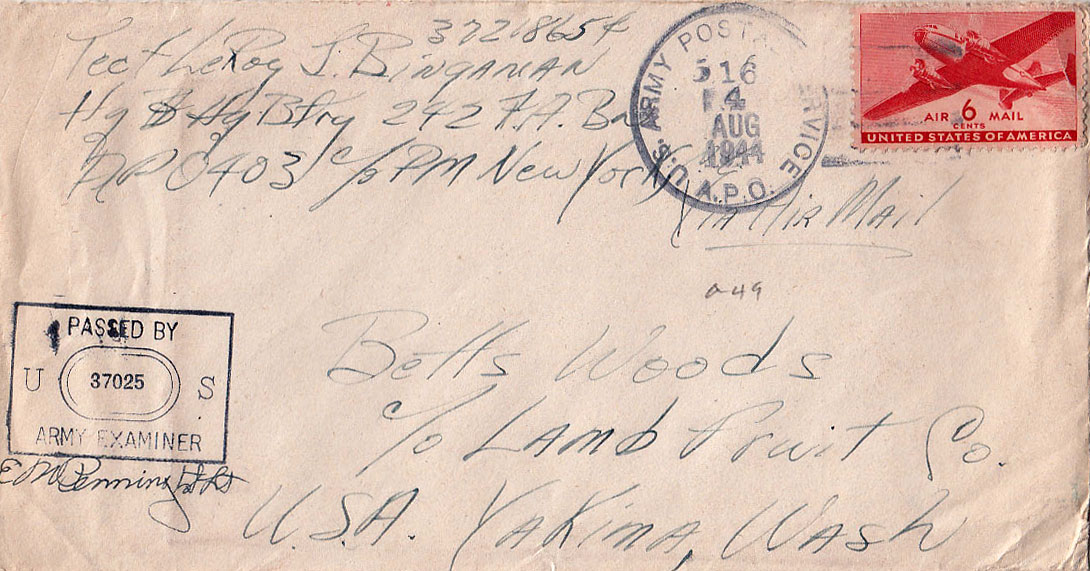 37218654
Tec4 LeRoy J. Bingaman
Hq & Hq Btry 242 F.A. Bn
APO 403 c/o PM New York
Via Air Mail
U.S. ARMY POSTAL SERVICE
516
4
AUG
1944
A.P.O.
AIR 6 MAIL
CENTS
UNITED STATES OF AMERICA
a49
PASSED BY
U 37025 S
ARMY EXAMINER
Betts Woods
c/o Lamb Fruit Co.
U.S.A. Yakima, Wash